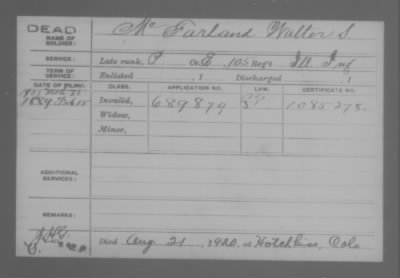 DEAD
NAME OF SOLDIER: Mc Farland Walter S.
SERVICE: Late rank, P Co. E, 105 Reg't Ill Inf
TERM OF SERVICE: Enlisted , 1 Discharged , 1
DATE OF FILING. CLASS. APPLICATION NO. LAW. CERTIFICATE NO.
1889 Feb 15 Invalid, 689879 1085278.
Widow,
Minor,
ADDITIONAL SERVICES:
REMARKS:
Died Aug 21, 1920, at Hotchkiss, Colo